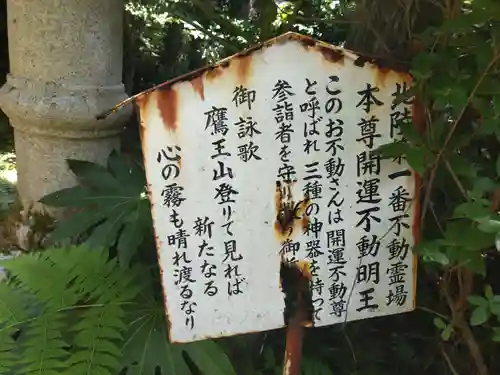 北陸第一番不動霊場
本尊開運不動明王
このお不動さんは開運不動尊
と呼ばれ三種の神器を持って
参詣者を守り
御
御詠歌
鷹王山登りて見れば
新たなる
心の霧も晴れ渡るなり